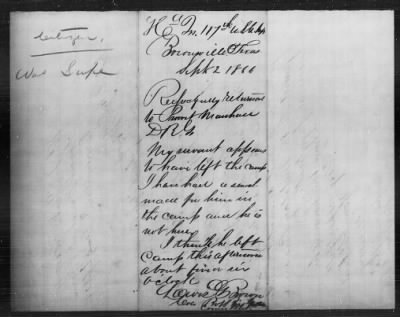 Citizen,
Hd Qrs 117th U.S.C.I.
Brownsville Texas
Sept 2 1866
Respectfully returned
to Provost Marshall
My servant appears
to have left the camp
I have had a search
made for him in
the camp and he is
not here
I think he left
camp this afternoon
about five or six
o'clock
Lewis G Brown